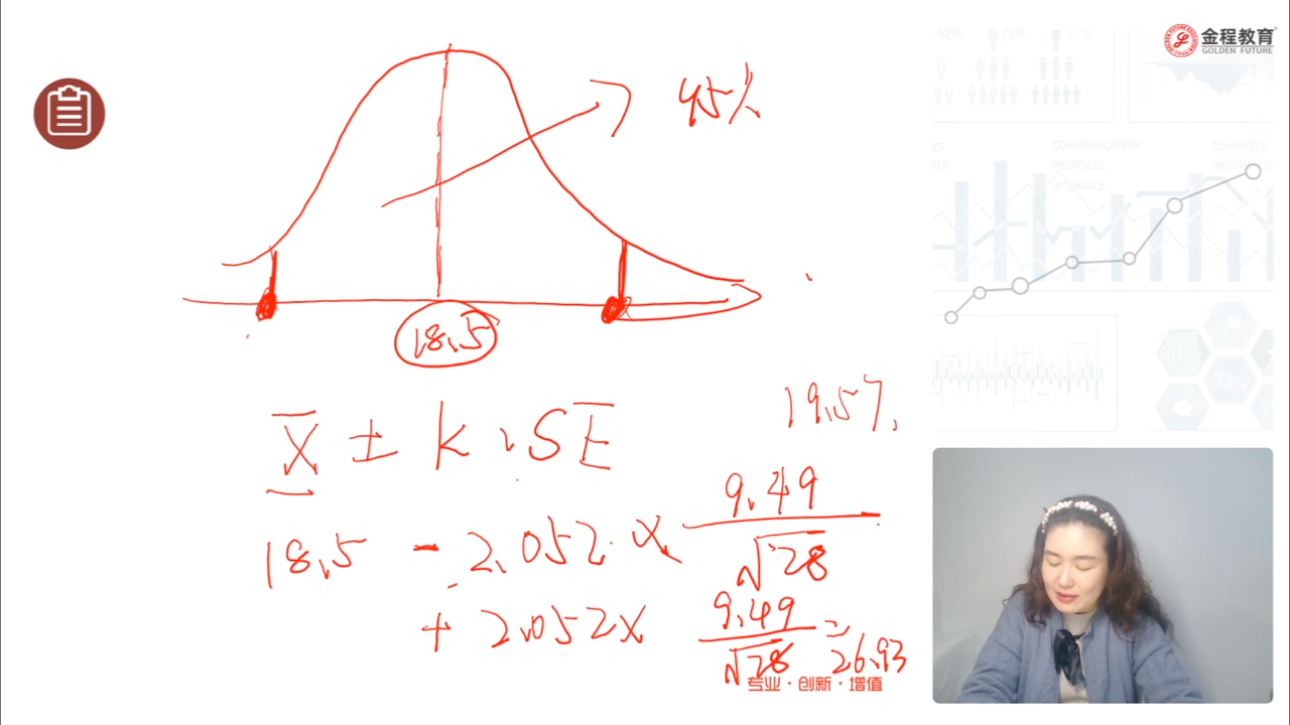 金程教育
GOLDEN FUTURE
47% 73%
95%
COMMUNICATION COMPUTES
PROTOCOL
INTERFACE
18.5
X̄ ± K · SE
19.57.
18.5 - 2.052 × 9.49/√28
+ 2.052 × 9.49/√28 = 26.93
40%
72%
专业·创新·增值